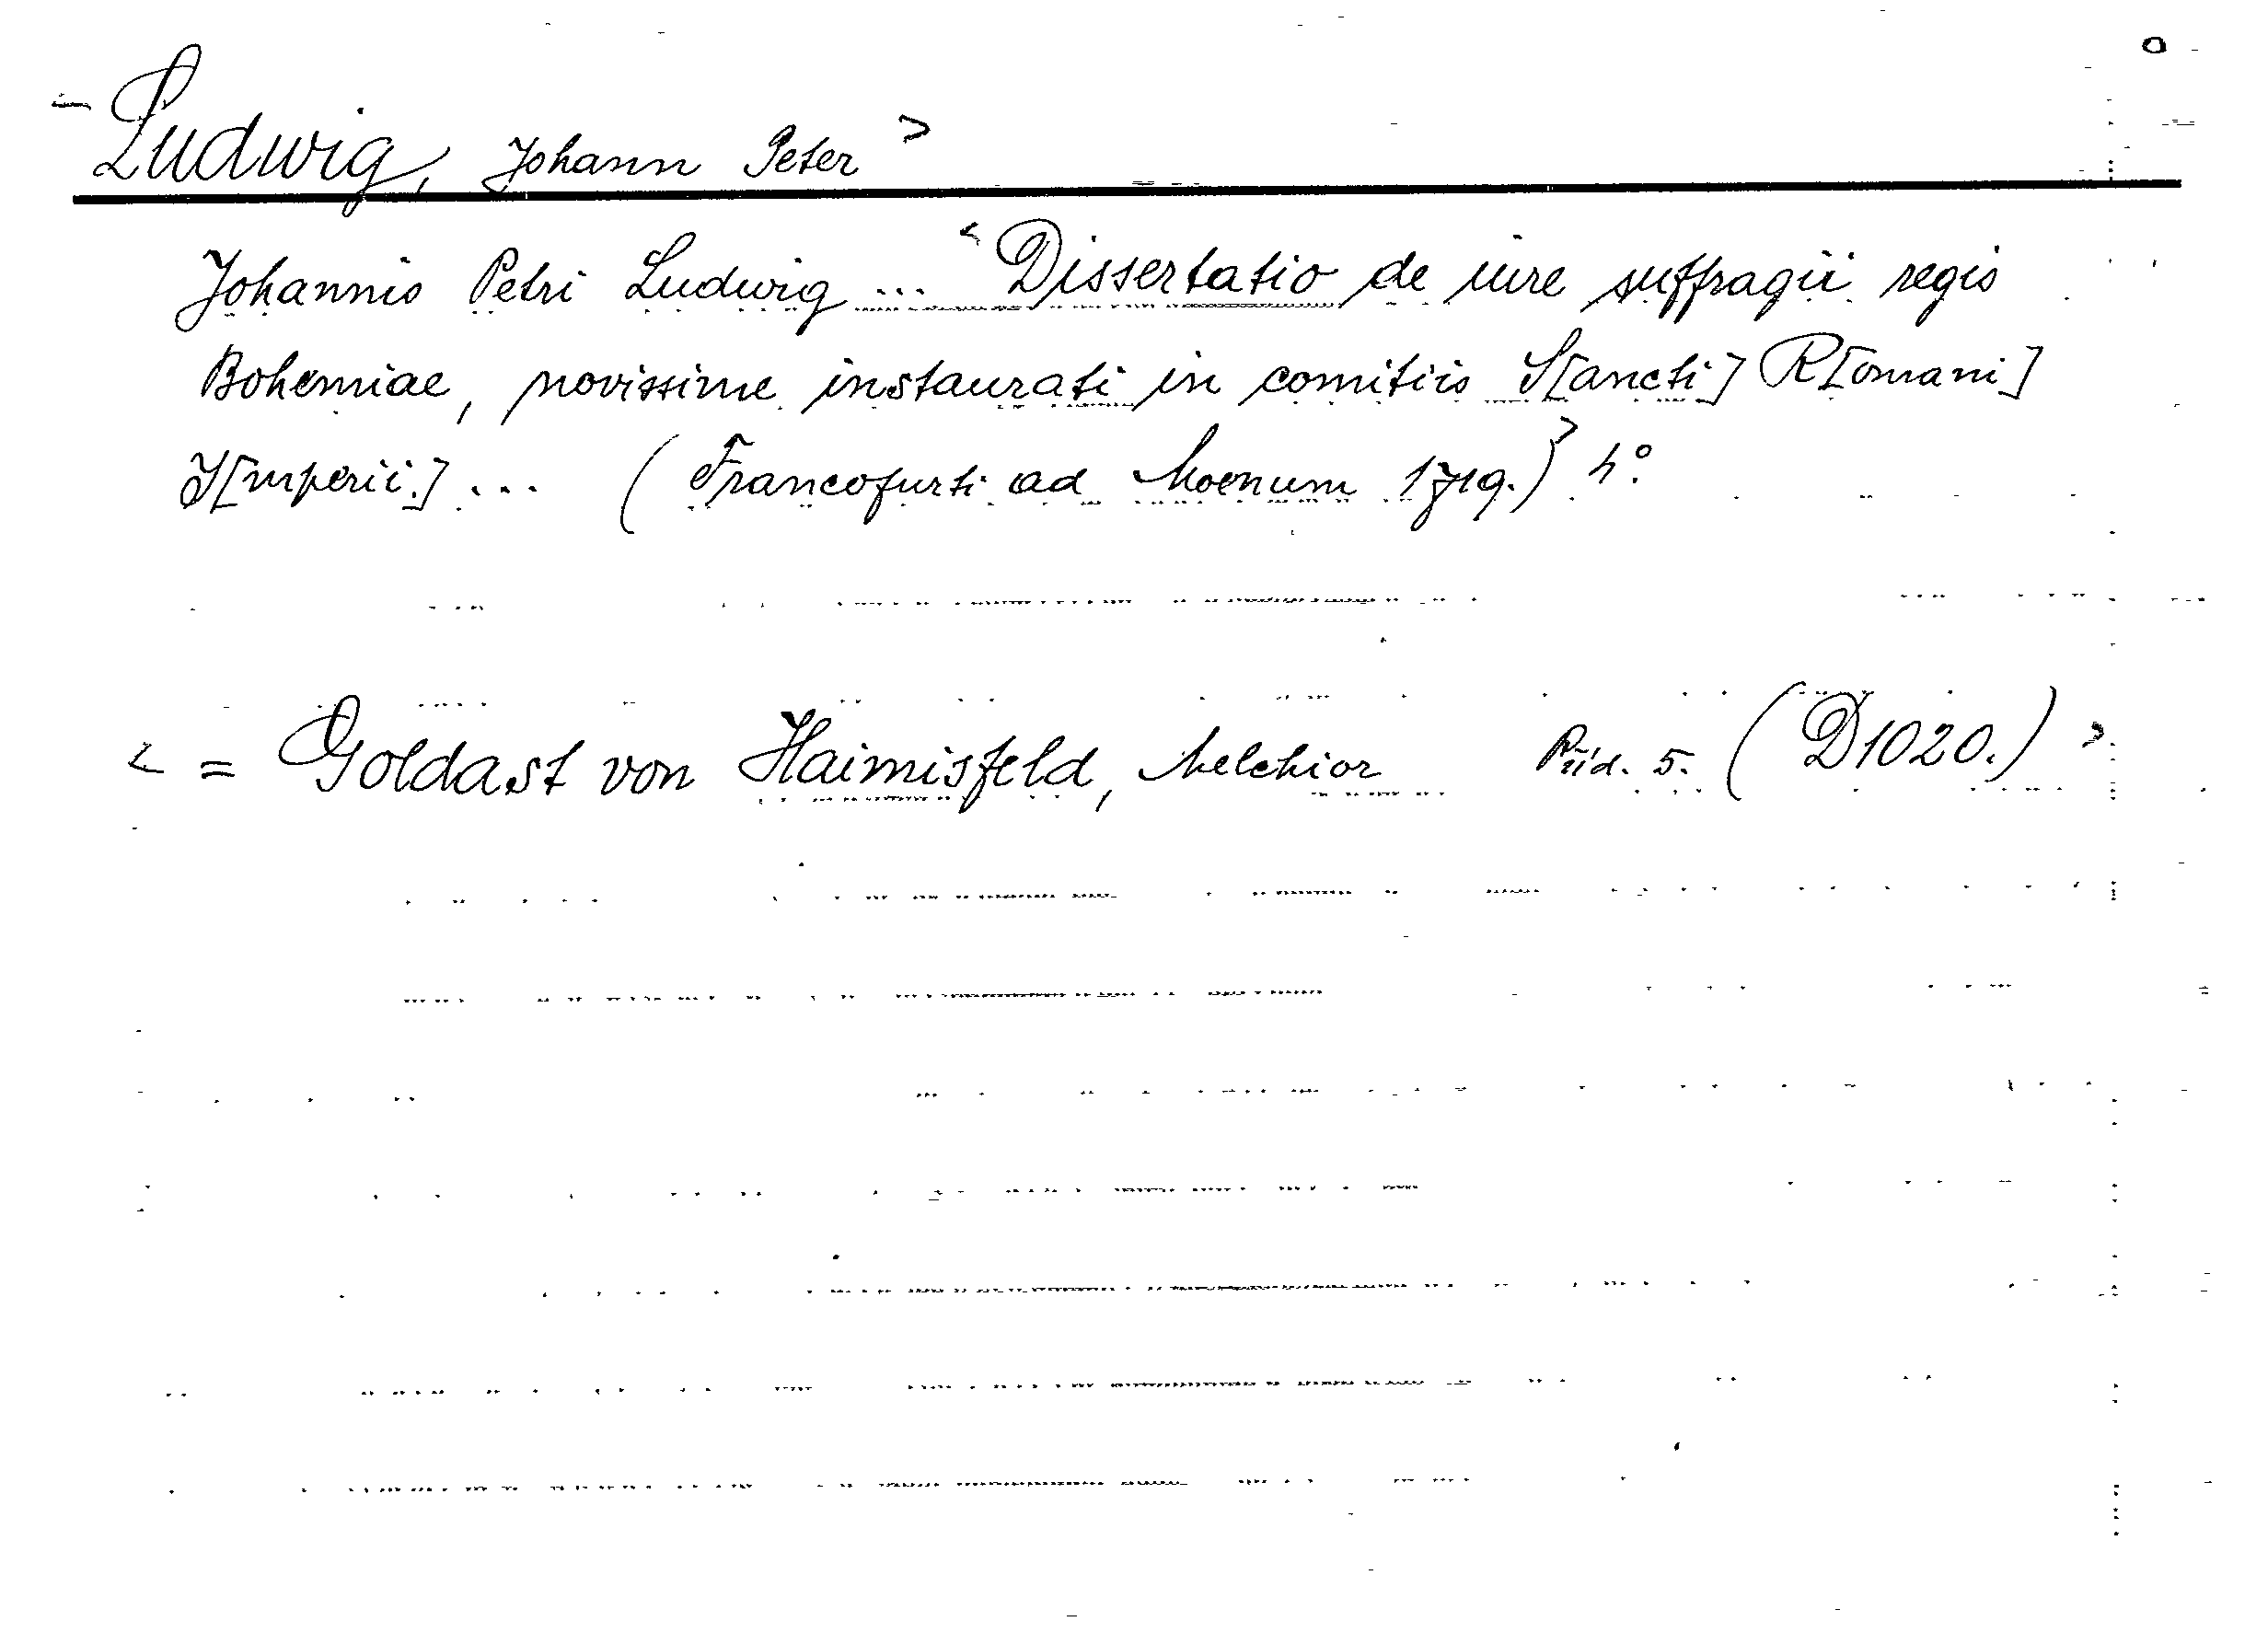 Ludwig, Johann Peter >
Johannis Petri Ludwig ... < Dissertatio de iure suffragii regis
Bohemiae, novissime instaurati in comitiis S[ancti] R[omani]
I[mperii.] ... (Francofurti ad Moenum 1719.) > 4°.
< = Goldast von Haimisfeld, Melchior Příd. 5. (D1020.) >